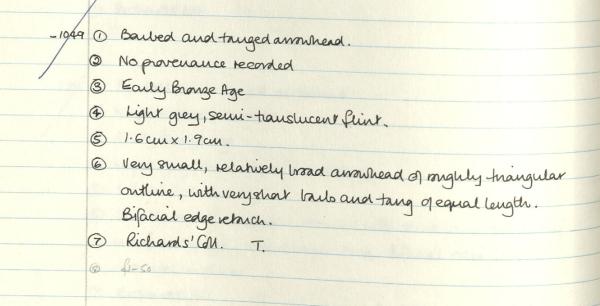 -1049 ① Barbed and tanged arrowhead.
② No provenance recorded
③ Early Bronze Age
④ Light grey, semi-translucent flint.
⑤ 1.6cm x 1.9cm.
⑥ Very small, relatively broad arrowhead of roughly triangular
outline, with very short barbs and tang of equal length.
Bifacial edge retouch.
⑦ Richards' Coll. T.
⑧ £1-50